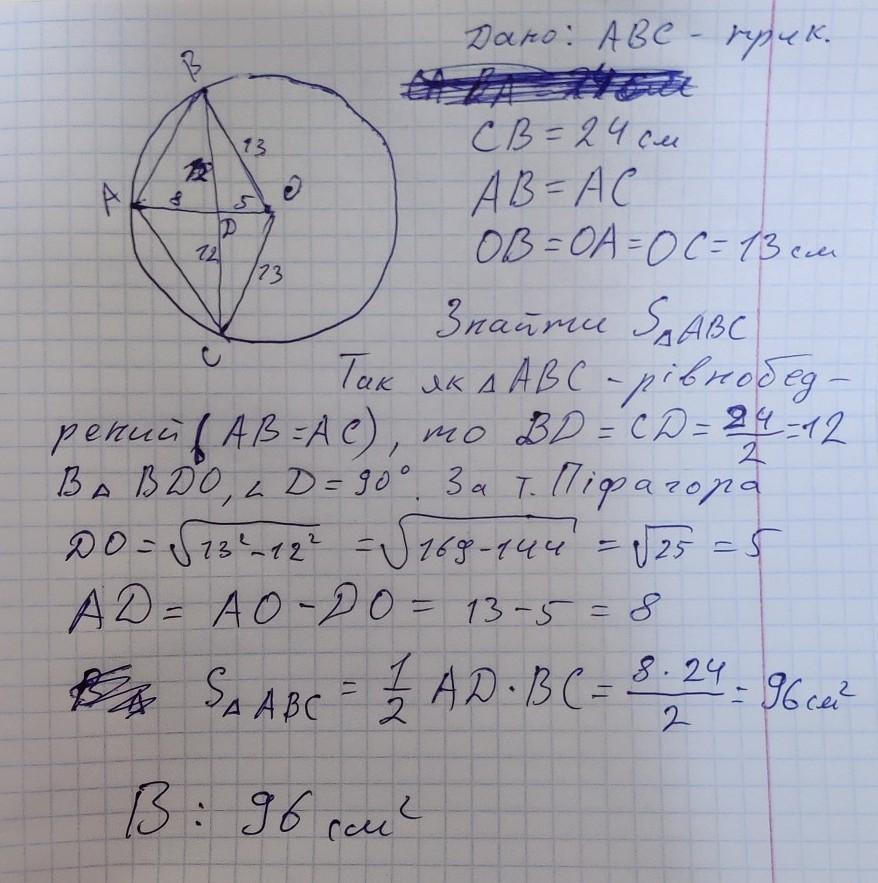 Дано: ABC - трик.
CB = 24 см
AB = AC
OB = OA = OC = 13 см
Знайти S△ABC
B
13
12
A
8
5
O
D
12
13
C
Так як △ABC - рівнобед-
рений (AB = AC), то BD = CD = 24/2 = 12
В △ BDO, ∠D = 90°. За т. Піфагора
DO = √13² - 12² = √169 - 144 = √25 = 5
AD = AO - DO = 13 - 5 = 8
S△ABC = 1/2 AD · BC = 8 · 24/2 = 96 см²
В: 96 см²